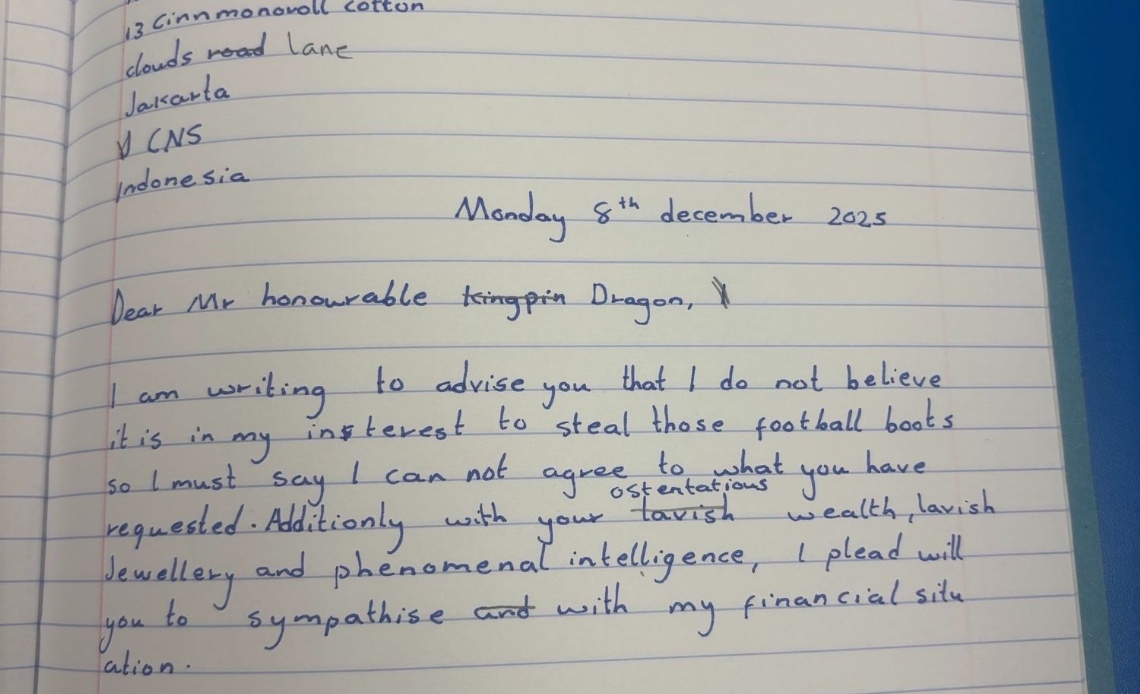 13 Cinnmonoroll cotton
clouds road lane
Jakarta
CNS
Indonesia
Monday 8th december 2025
Dear Mr honourable kingpin Dragon,
I am writing to advise you that I do not believe
it is in my insterest to steal those football boots
so I must say I can not agree to what you have
ostentatious
requested. Additionly with your lavish wealth, lavish
Jewellery and phenomenal intelligence, I plead will
you to sympathise and with my financial situ
ation.